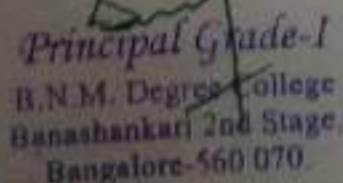 Principal Grade-I
B.N.M. Degree College
Banashankari 2nd Stage,
Bangalore-560 070.